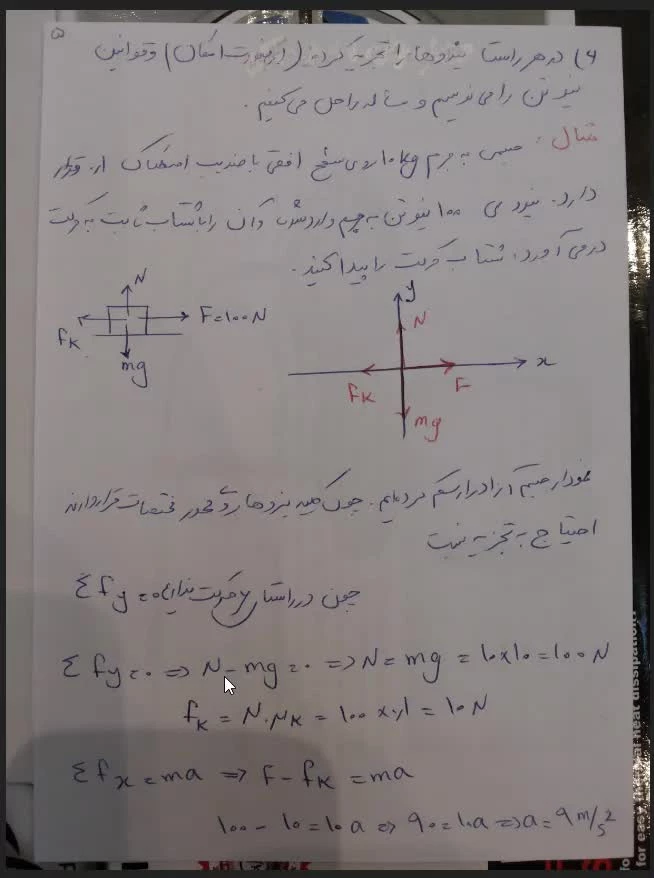 ۵
۶) در هر راستا نیروها را تجزیه کرده (در صورت امکان) و قوانین
نیوتن را می نویسیم و مساله را حل می کنیم.
مثال: جسمی به جرم ۱۰kg روی سطح افقی با ضریب اصطکاک ۰٫۱ قرار
دارد. نیروی ۱۰۰ نیوتن به جسم وارد شده و آن را با شتاب ثابت به حرکت
در می آورد، شتاب حرکت را پیدا کنید.
N
F=۱۰۰N
fk
mg
y
N
x
fk
F
mg
نمودار جسم آزاد را رسم کرده ایم. چون کلیه نیروها روی محور مختصات قرار دارند
احتیاج به تجزیه نیست
چون در راستای y حرکت نداریم Σfy=۰
Σfy=۰ ⇒ N-mg=۰ ⇒ N=mg=۱۰×۱۰=۱۰۰N
fk = N.μk = ۱۰۰×۰٫۱ = ۱۰N
Σfx=ma ⇒ F-fk=ma
۱۰۰-۱۰=۱۰a ⇒ ۹۰=۱۰a ⇒ a=۹m/s²
for easy
al heat dissipation!